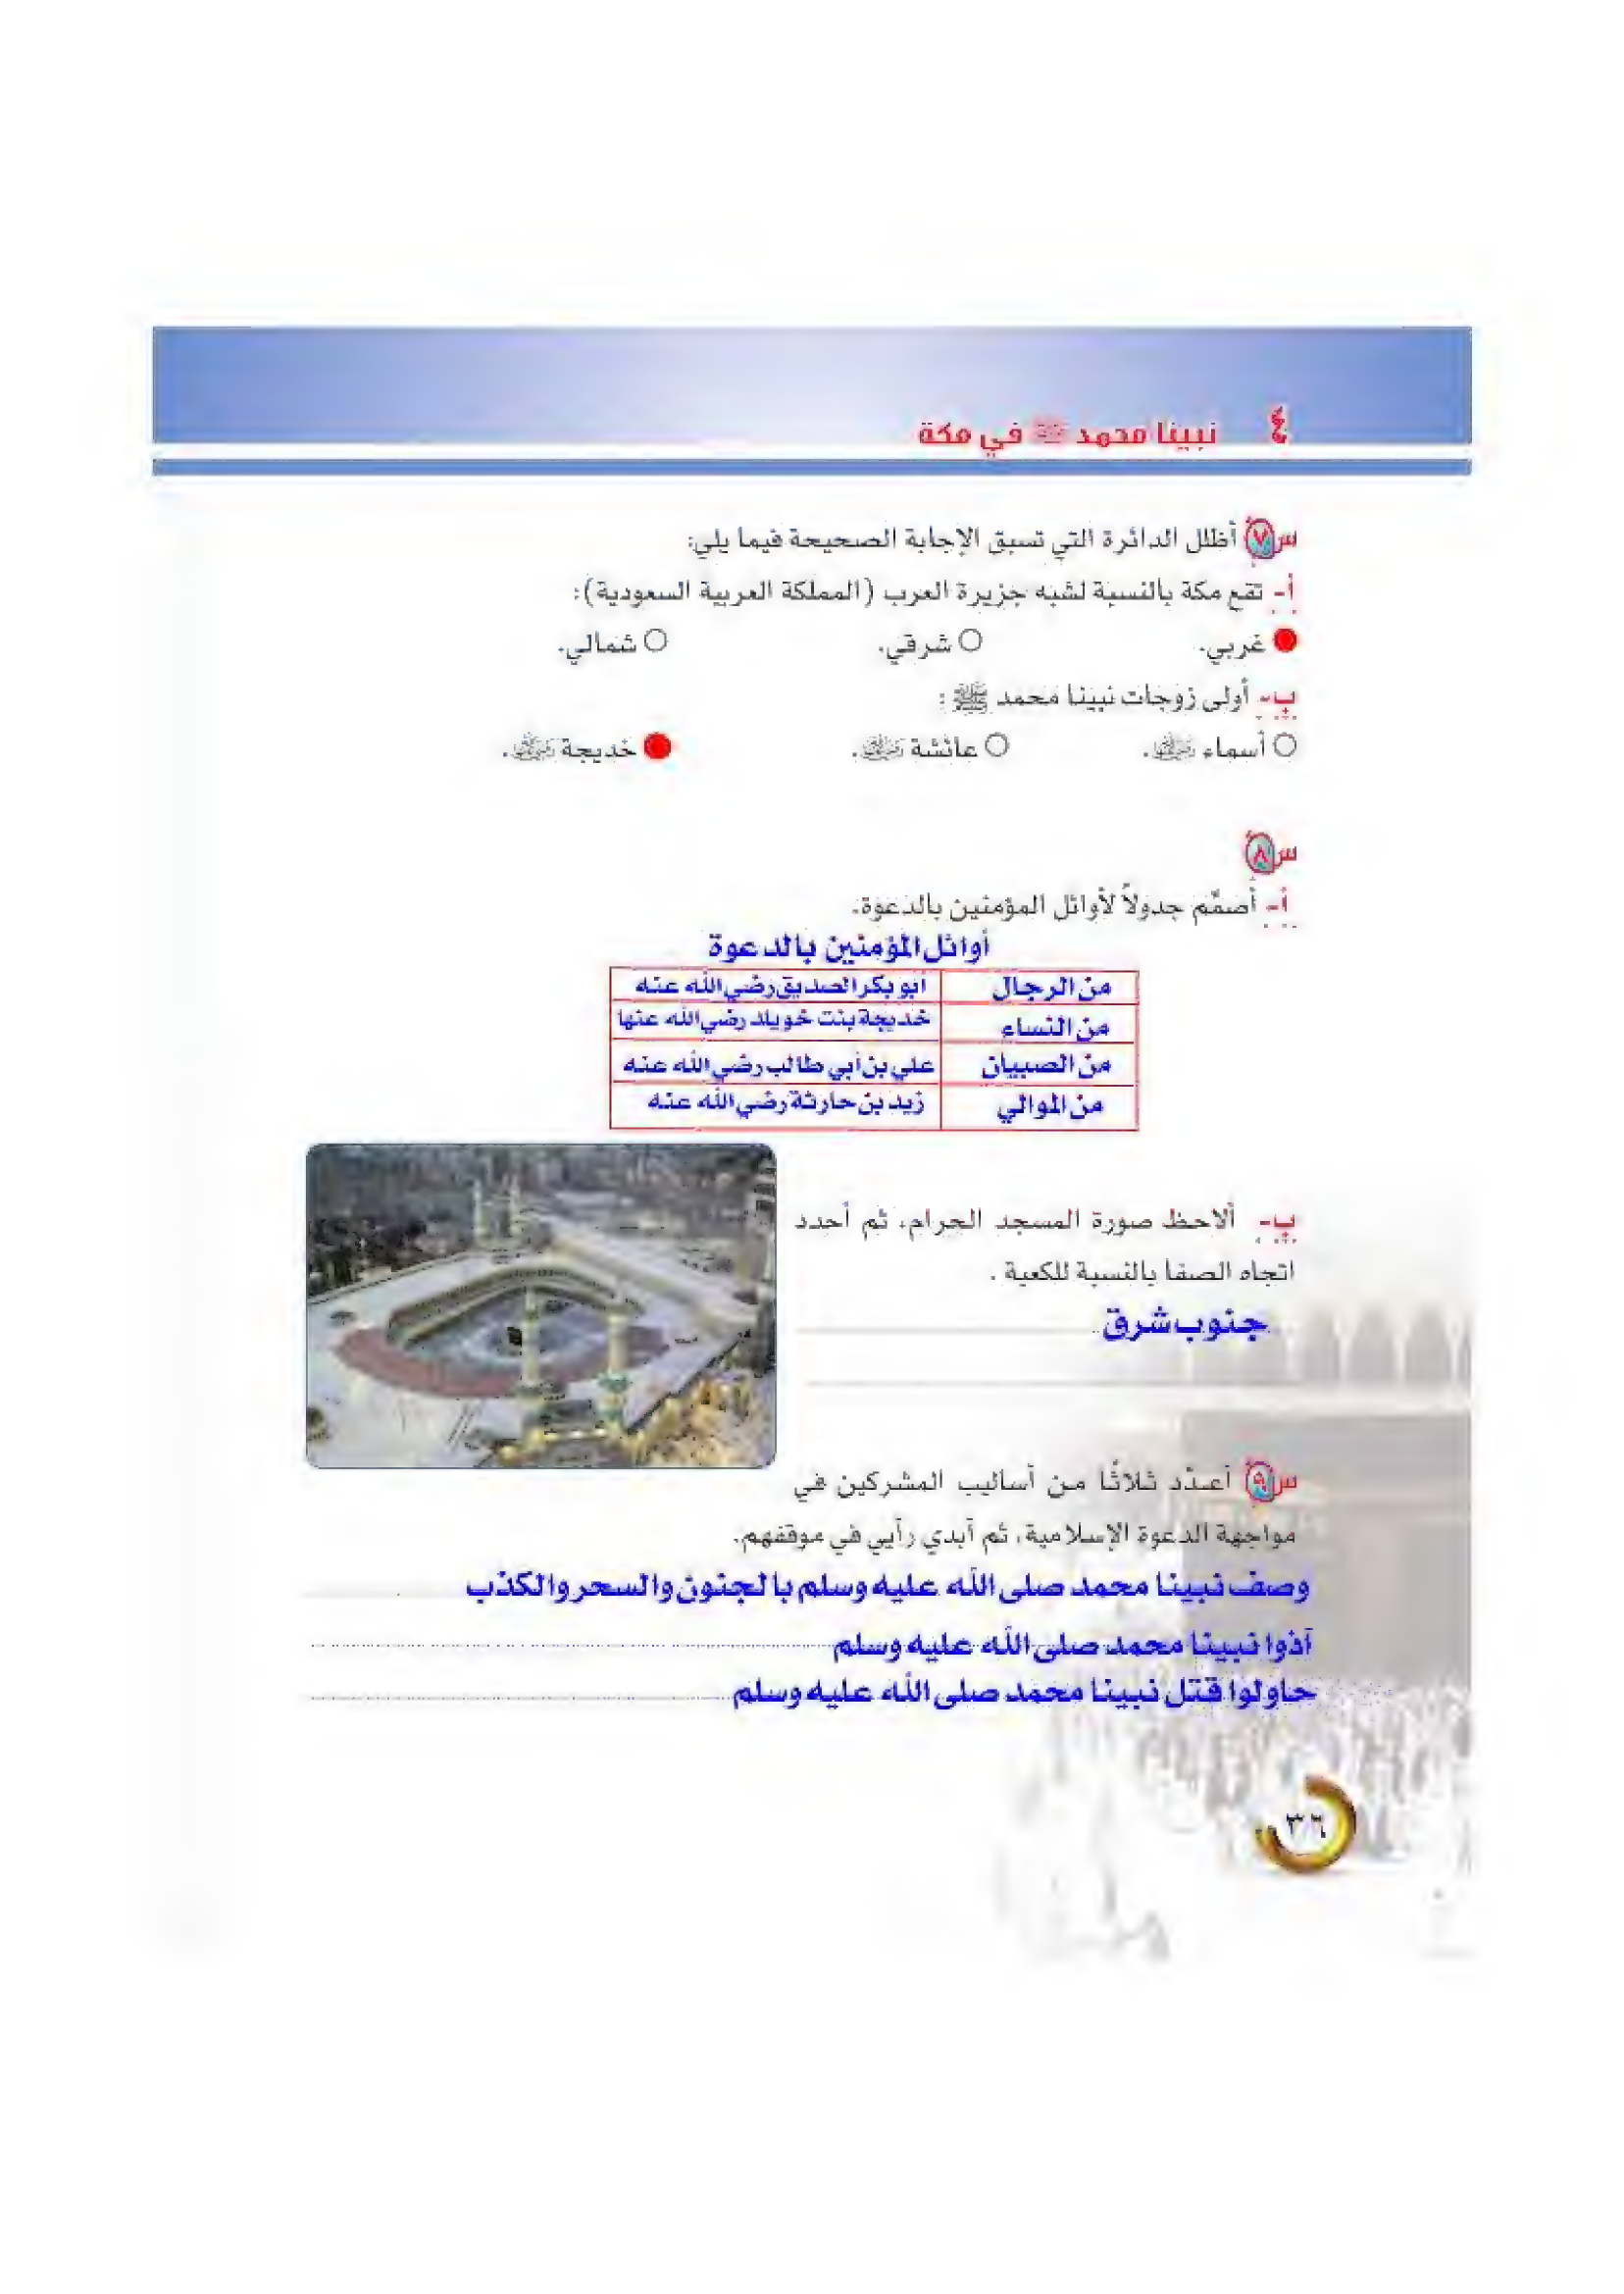 ٤ نبينا محمد ﷺ في مكة
س٧ أظلل الدائرة التي تسبق الإجابة الصحيحة فيما يلي:
أ- تقع مكة بالنسبة لشبه جزيرة العرب (المملكة العربية السعودية):
غربي. شرقي. شمالي.
ب- أولى زوجات نبينا محمد ﷺ :
أسماء رضي الله عنها. عائشة رضي الله عنها. خديجة رضي الله عنها.
س٨
أ- أصمّم جدولاً لأوائل المؤمنين بالدعوة.
أوائل المؤمنين بالدعوة
من الرجال أبو بكر الصديق رضي الله عنه
من النساء خديجة بنت خويلد رضي الله عنها
من الصبيان علي بن أبي طالب رضي الله عنه
من الموالي زيد بن حارثة رضي الله عنه
ب- ألاحظ صورة المسجد الحرام، ثم أحدد
اتجاه الصفا بالنسبة للكعبة .
جنوب شرق
س٩ أعدّد ثلاثًا من أساليب المشركين في
مواجهة الدعوة الإسلامية، ثم أبدي رأيي في موقفهم.
وصف نبينا محمد صلى الله عليه وسلم بالجنون والسحر والكذب
آذوا نبينا محمد صلى الله عليه وسلم
حاولوا قتل نبينا محمد صلى الله عليه وسلم
٣٦